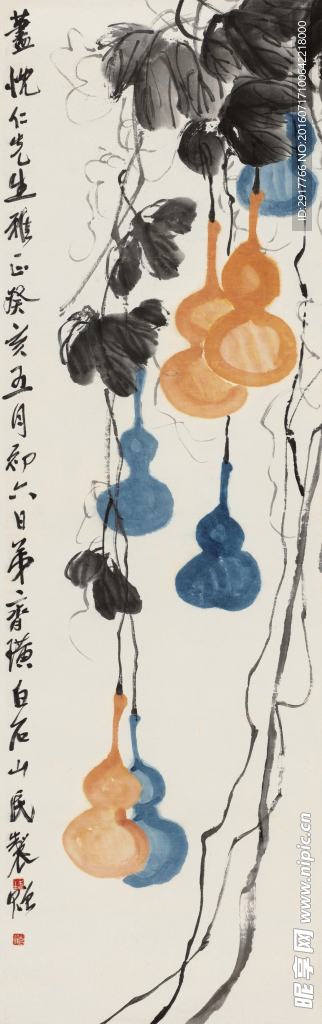 蓋忱仁先生雅正癸亥五月初六日弟齊璜白石山民製
ID:2917766 NO:20160717100642218000
昵享网 www.nipic.cn